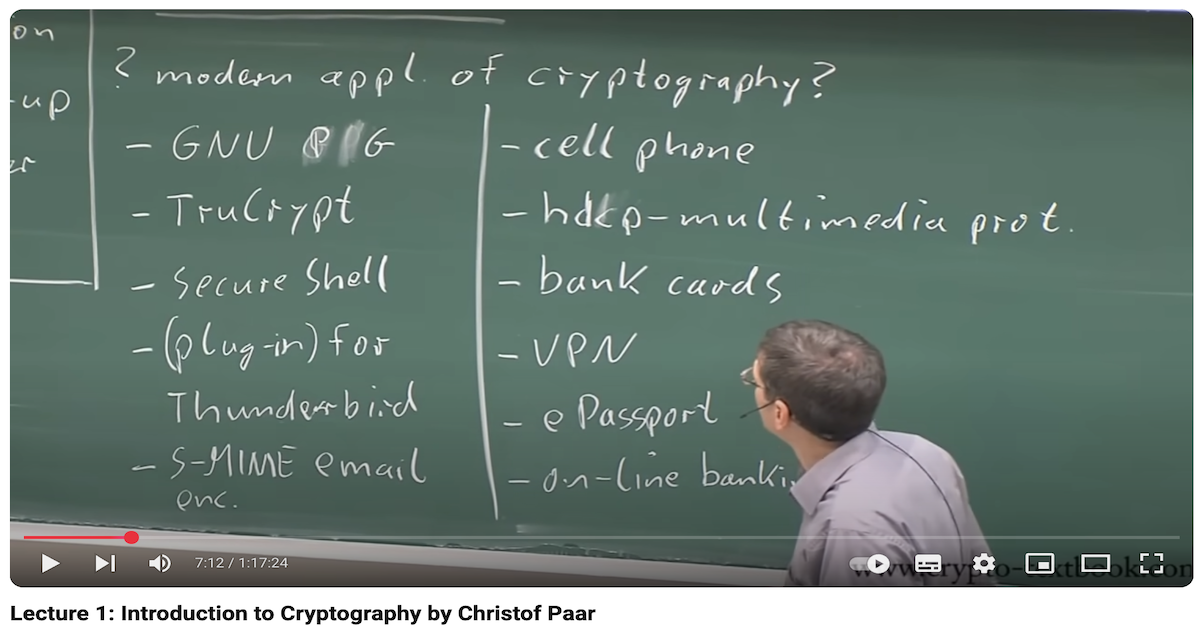 on
-up
er
? modern appl. of cryptography?
- GNU P G
- TruCrypt
- Secure Shell
- (plug-in) for
Thunderbird
- S-MIME email
enc.
- cell phone
- hdcp-multimedia prot.
- bank cards
- VPN
- ePassport
- on-line banki
7:12 / 1:17:24
www.crypto-textbook.com
Lecture 1: Introduction to Cryptography by Christof Paar